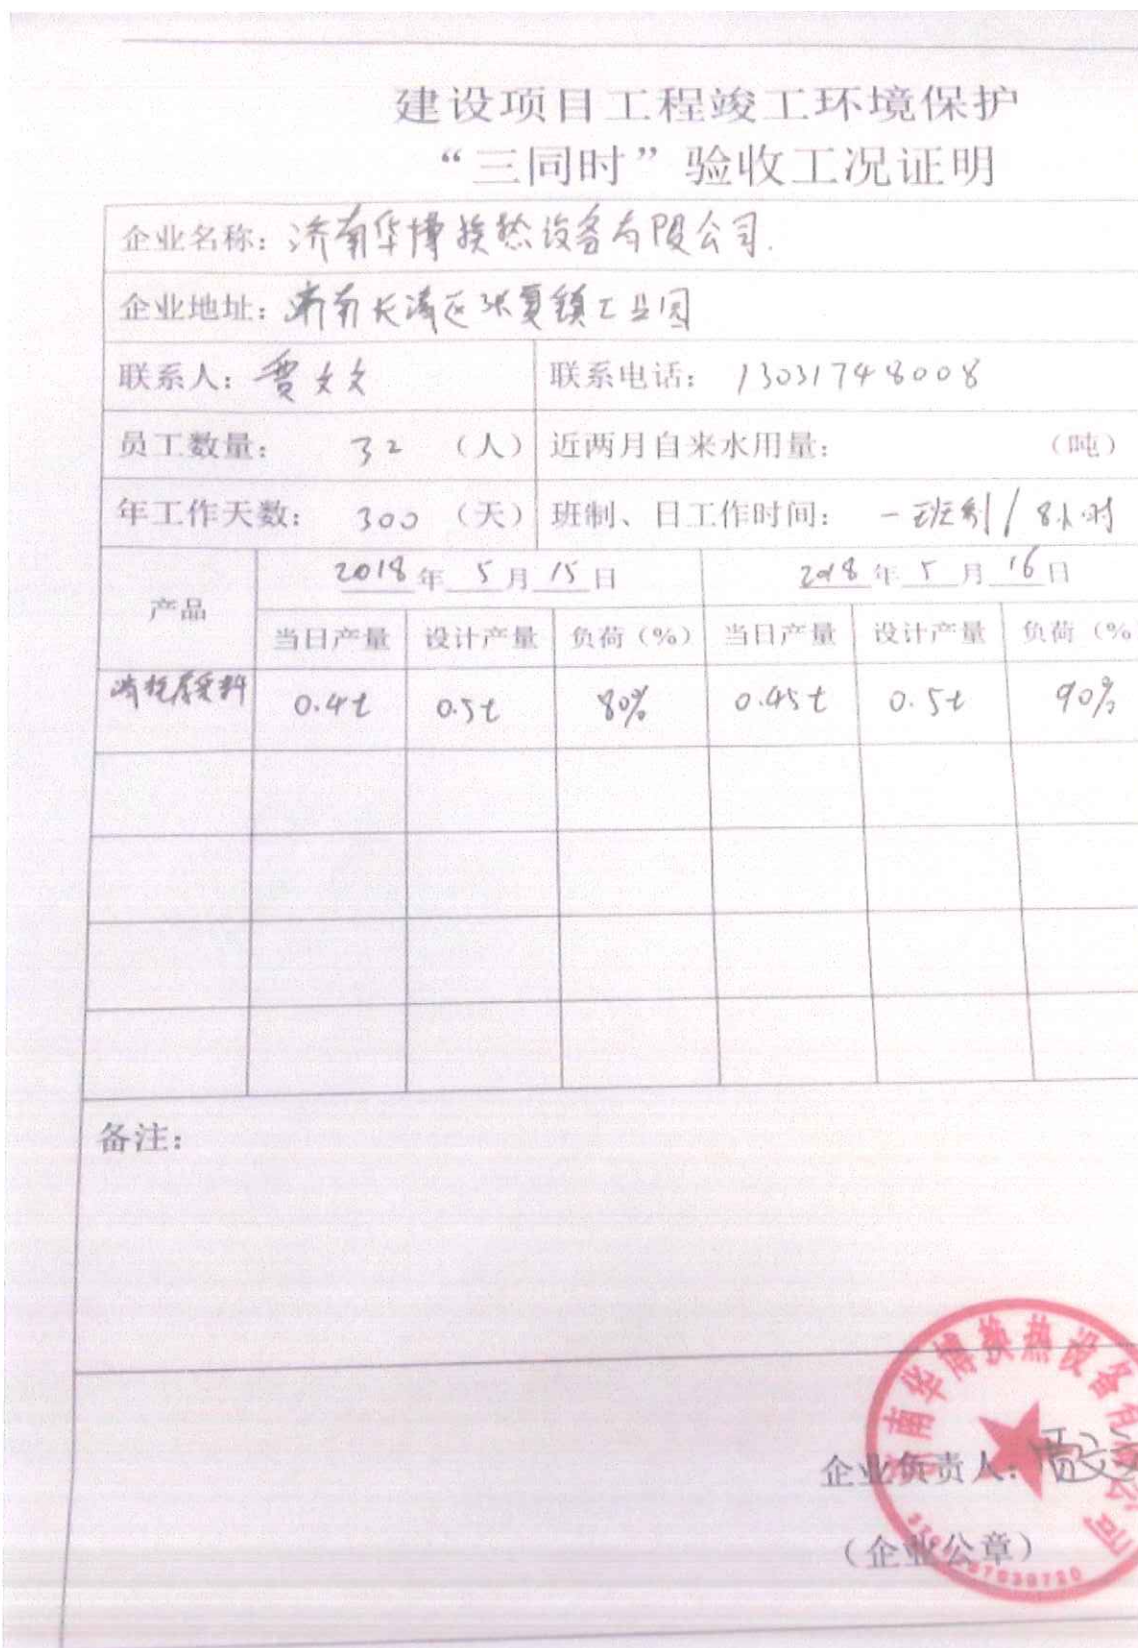 建设项目工程竣工环境保护
“三同时”验收工况证明
企业名称：济南华博换热设备有限公司.
企业地址：济南长清区张夏镇工业园
联系人：贾文文 联系电话：13031748008
员工数量： 32 （人） 近两月自来水用量： （吨）
年工作天数： 300 （天） 班制、日工作时间： 一班制/8小时
产品 2018年5月15日 2018年5月16日
当日产量 设计产量 负荷（%） 当日产量 设计产量 负荷（%
0.4t 0.5t 80% 0.45t 0.5t 90%
备注：
济南华博换热设备有限公司
企业负责人：
（企业公章）